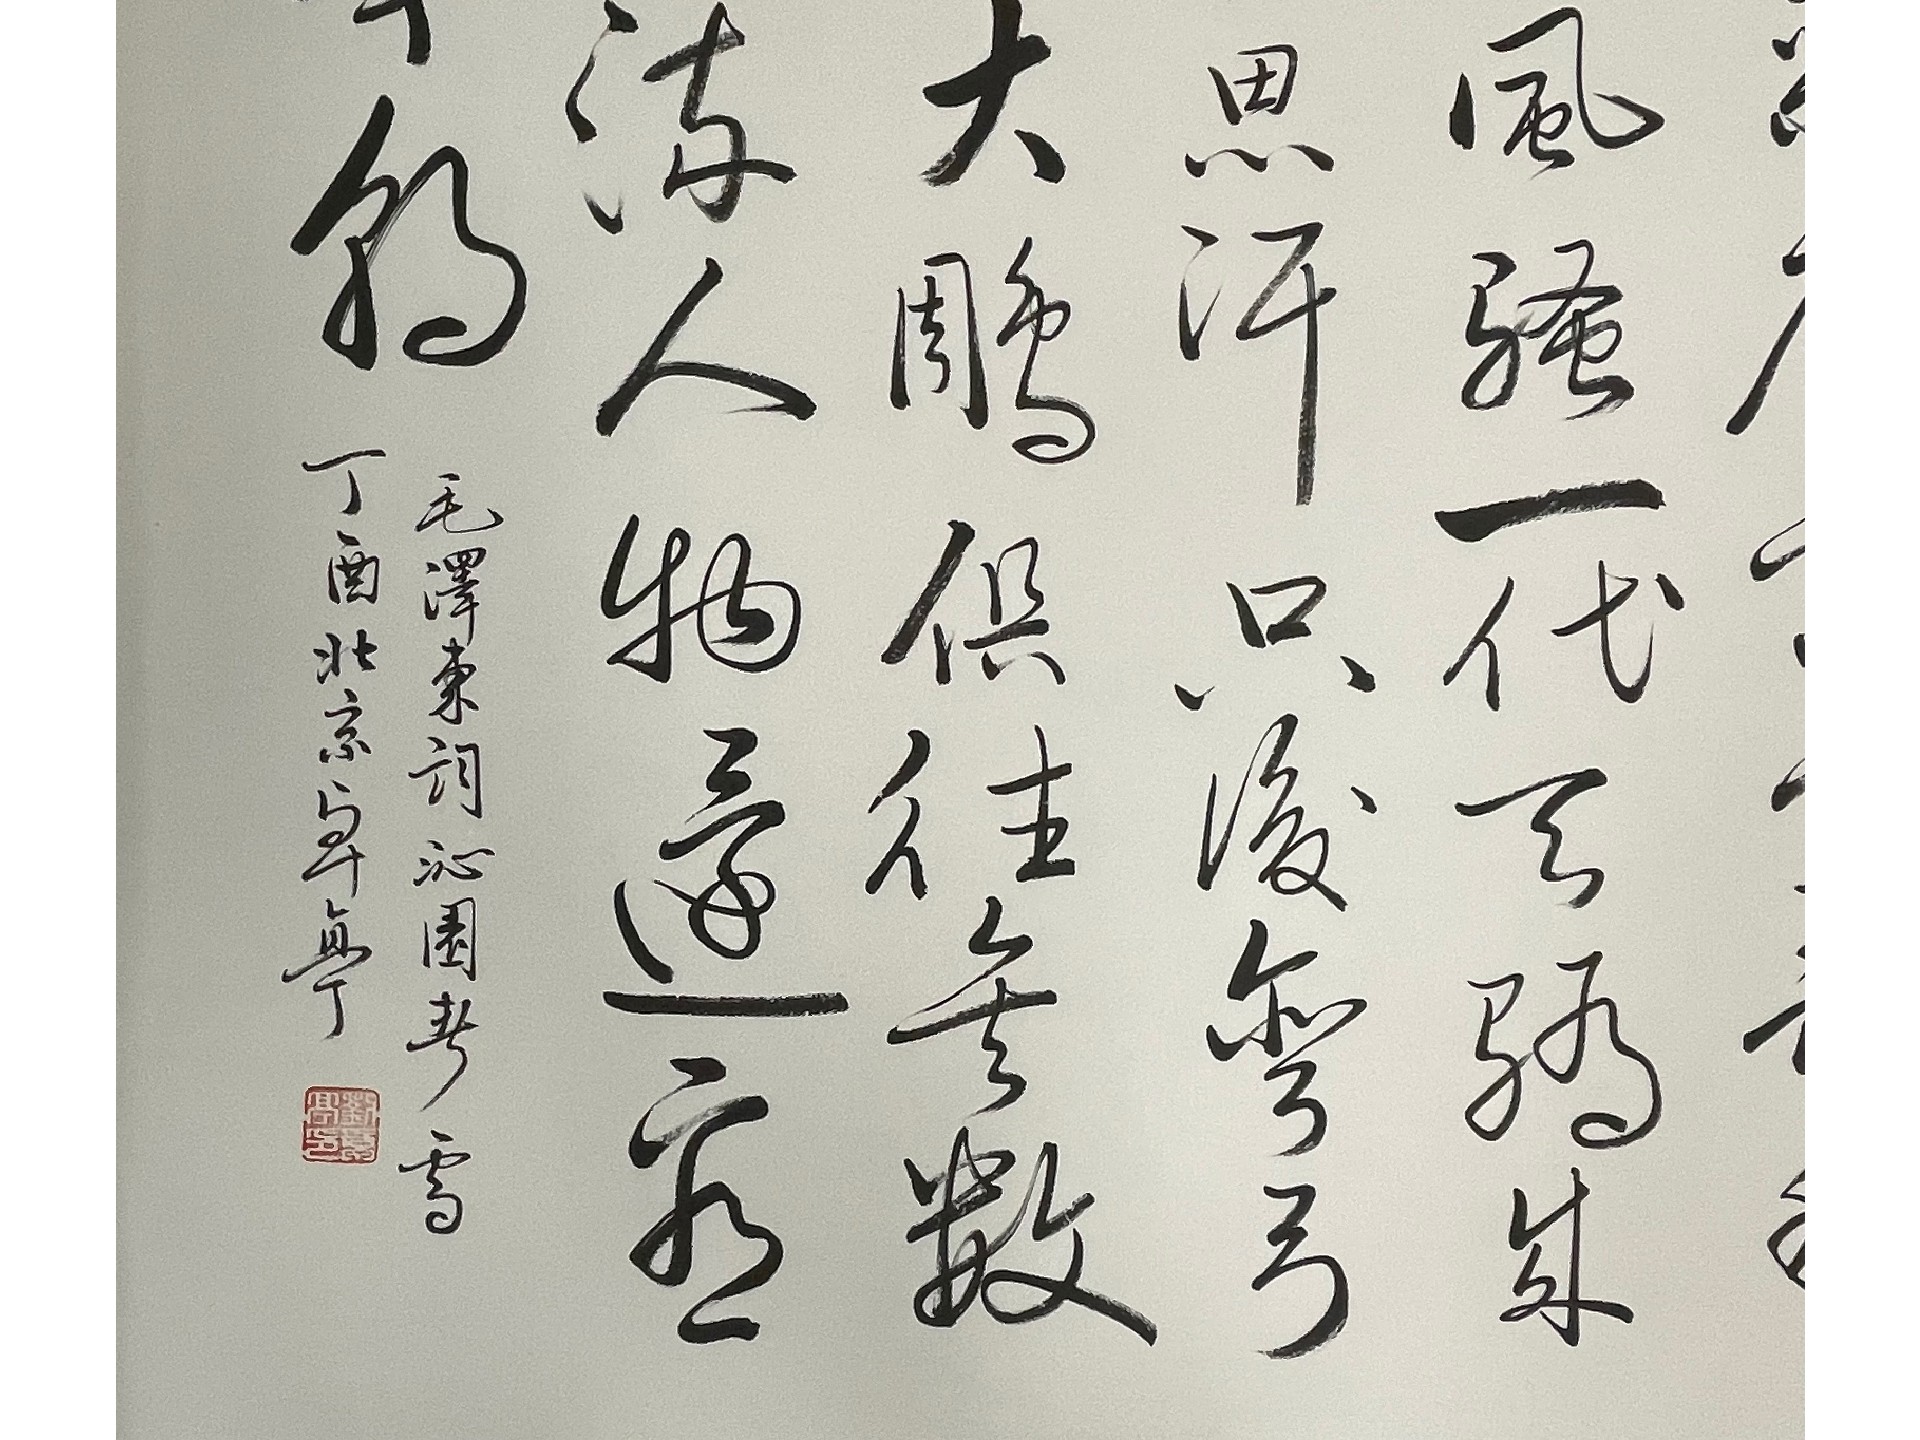 風騷一代天驕成
思汗只識彎弓
大鵰俱往矣數
流人物還看
朝
毛澤東詞沁園春 雪
丁酉北京